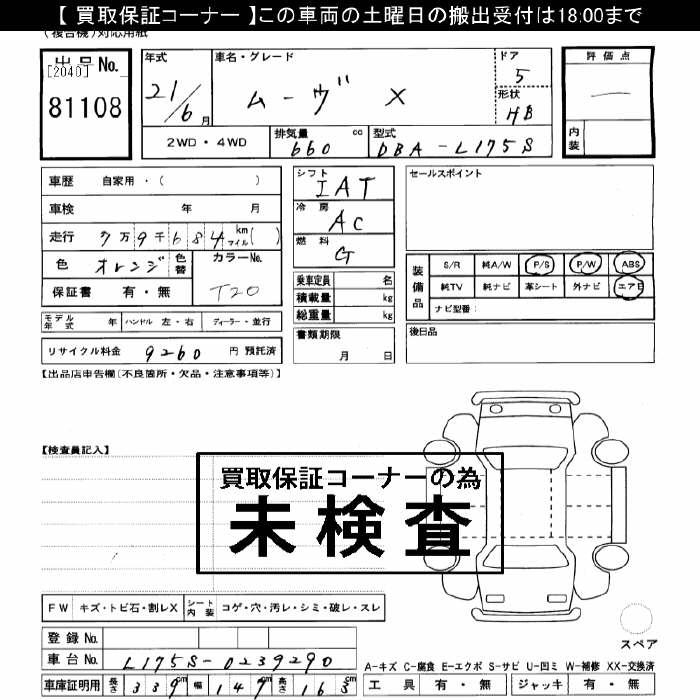 【 買取保証コーナー 】この車両の土曜日の搬出受付は18:00まで
(複合機)対応用紙
出品 No.
[2040]
81108
年式
21/6月
車名・グレード
ムーヴ X
ドア
5
形状
HB
評価点
―
内装
2WD・4WD
排気量 cc
660
型式
DBA-L175S
車歴 自家用・( )
車検 年 月
走行 7万9千684 km マイル( )
色 オレンジ 色替
カラーNo.
T20
保証書 有・無
シフト
IAT
冷房
AC
燃料
G
乗車定員 名
積載量 kg
総重量 kg
書類期限
月 日
セールスポイント
装備品
S/R 純A/W P/S P/W ABS
純TV 純ナビ 革シート 外ナビ エアB
ナビ型番:
後日品
モデル年式 年 ハンドル 左・右 ディーラー・並行
リサイクル料金 9260 円 預託済
【出品店申告欄(不良箇所・欠品・注意事項等)】
【検査員記入】
買取保証コーナーの為
未検査
FW キズ・トビ石・割レX シート内装 コゲ・穴・汚レ・シミ・破レ・スレ
登録 No.
車台 No. L175S-0239290
車庫証明用 長さ 339cm 幅 147cm 高さ 163cm
スペア
A-キズ C-腐食 E-エクボ S-サビ U-凹ミ W-補修 XX-交換済
工具 有・無 ジャッキ 有・無